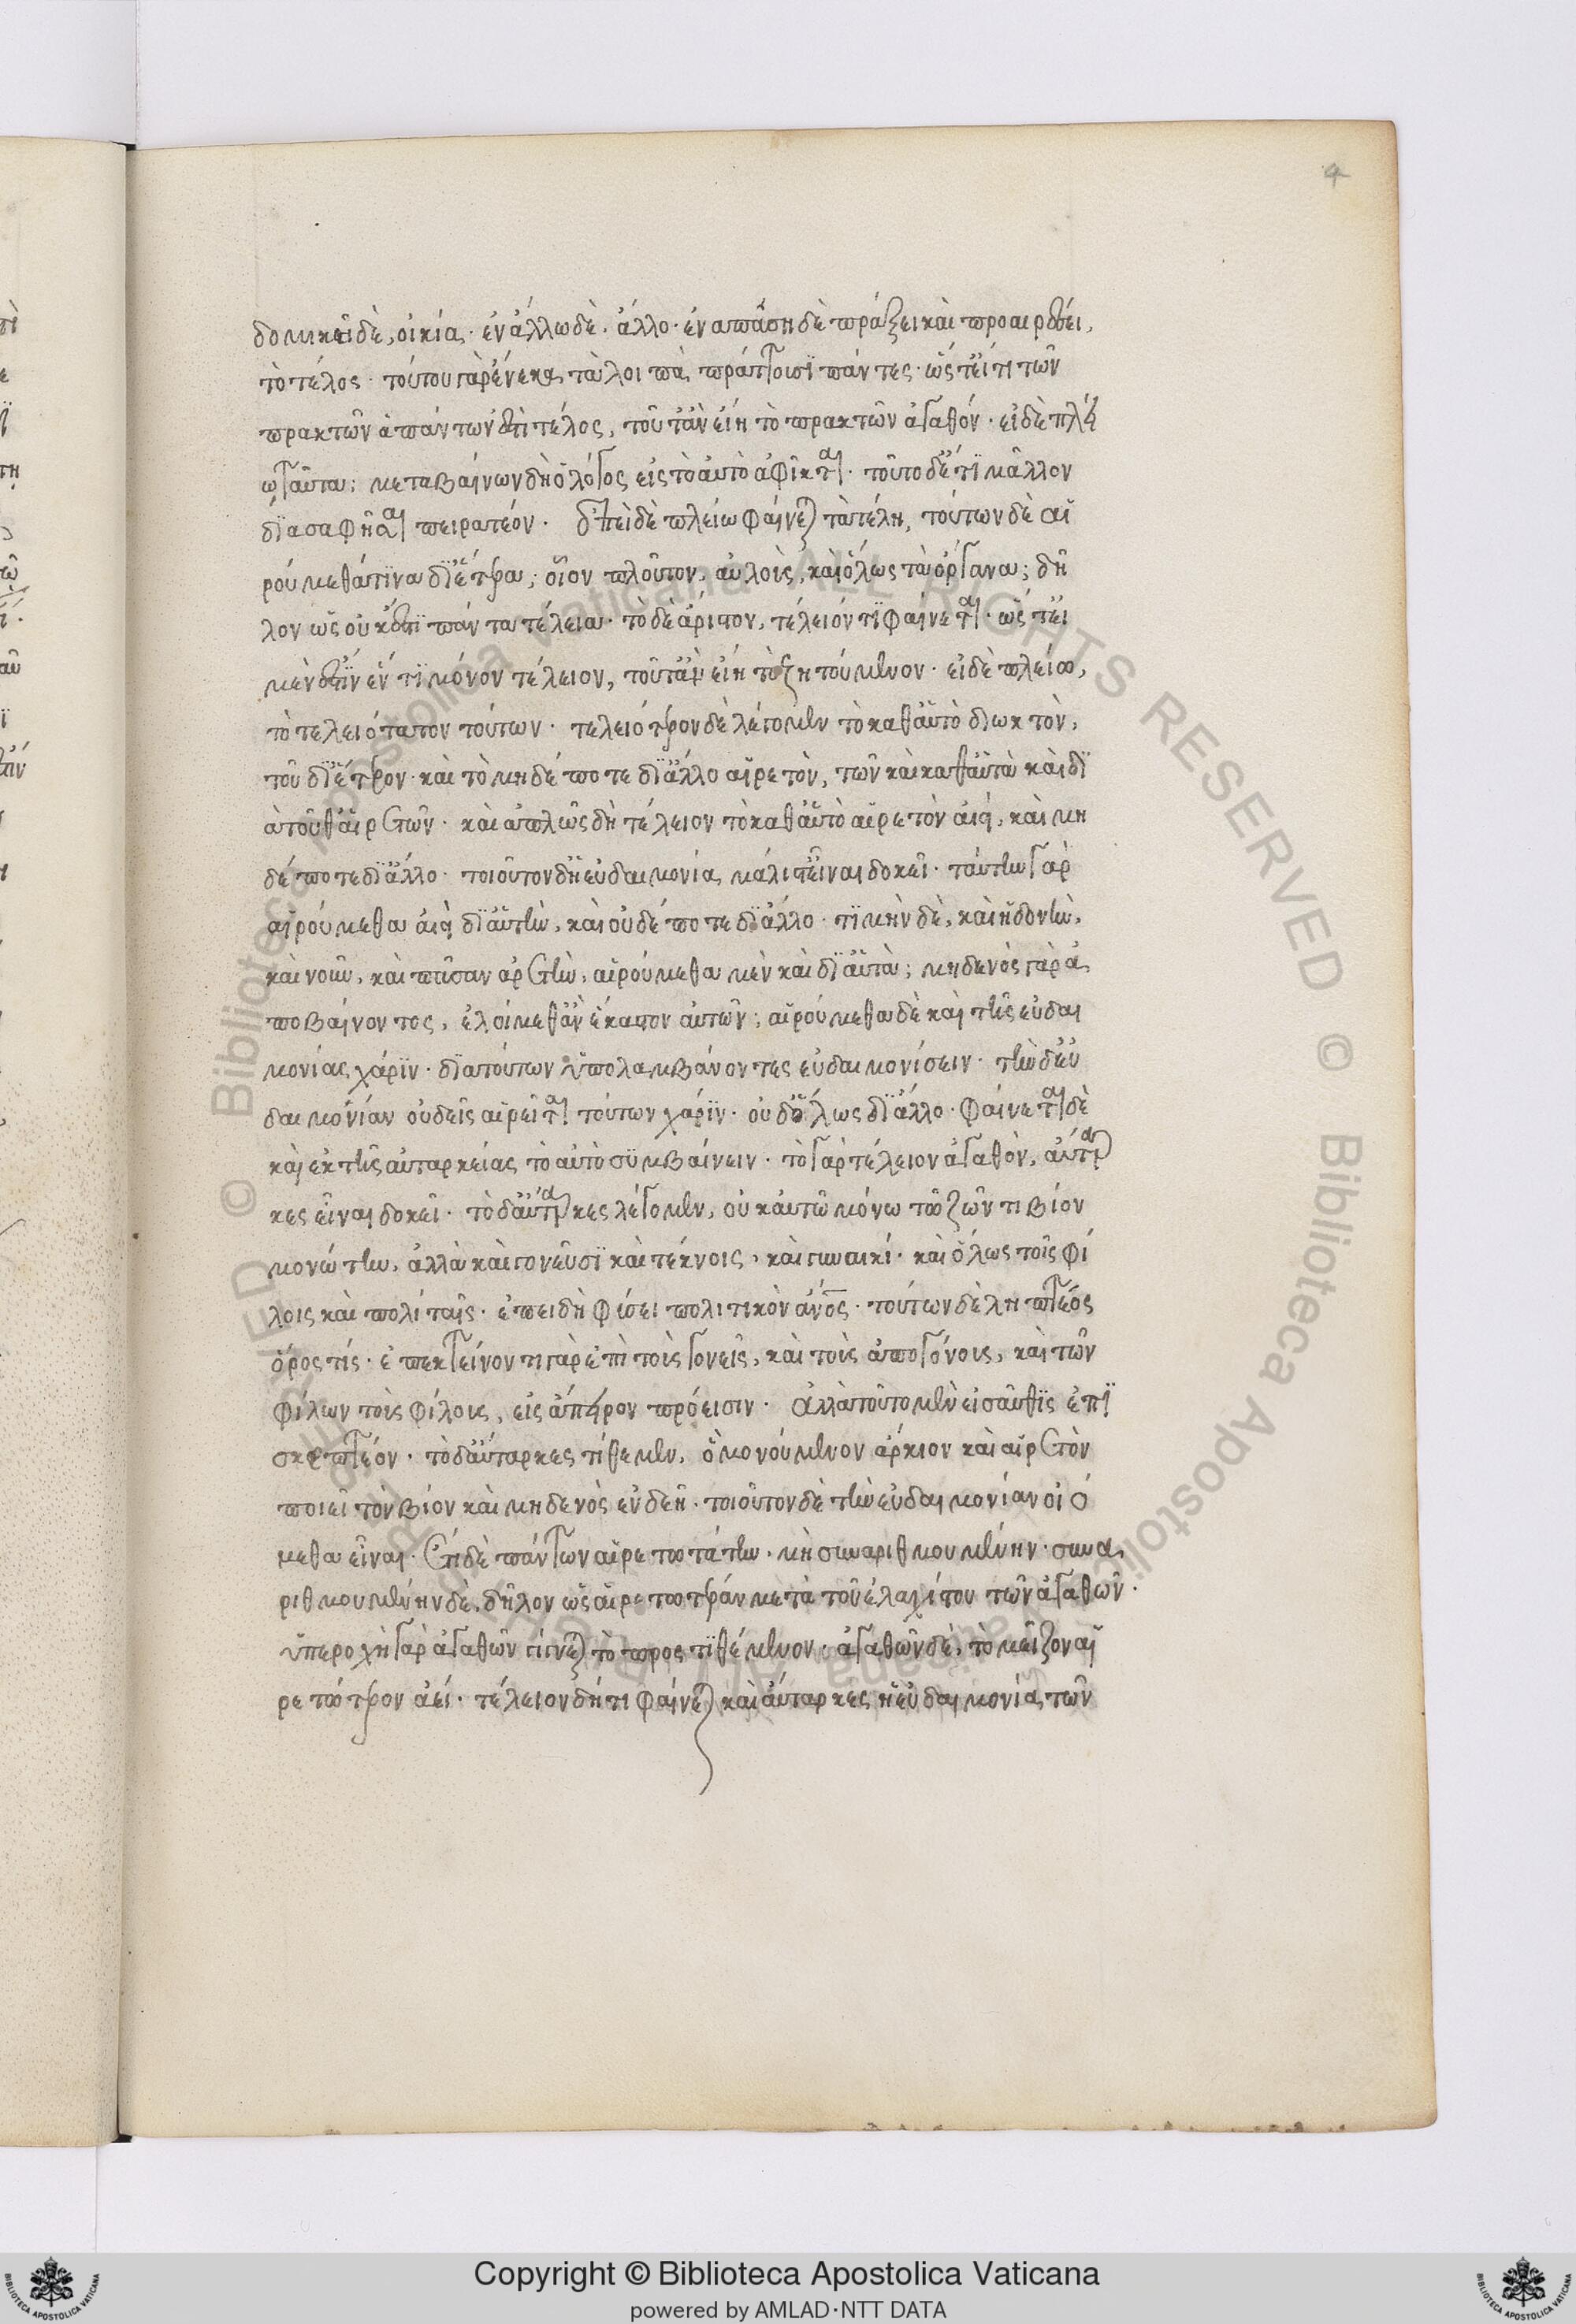 4
δομικῆ δὲ, οἰκία· ἐν ἄλλω δὲ, ἄλλο· ἐν ἁπάση δὲ πράξει καὶ προαιρέσει,
τὸ τέλος· τούτου γὰρ ἕνεκα τὰ λοιπὰ πράττουσι πάντες· ὥστ' εἴ τι τῶν
πρακτῶν ἁπάντων ἐστὶ τέλος, τοῦτ' ἂν εἴη τὸ πρακτὸν ἀγαθόν· εἰ δὲ πλεί
ω, ταῦτα· μεταβαίνων δὴ ὁ λόγος εἰς τὸ αὐτὸ ἀφῖκται· τοῦτο δ' ἔτι μᾶλλον
διασαφῆσαι πειρατέον· ἐπεὶ δὲ πλείω φαίνεται τὰ τέλη, τούτων δὲ αἱ
ρούμεθά τινα δι' ἕτερα· οἷον πλοῦτον, αὐλοὺς, καὶ ὅλως τὰ ὄργανα· δῆ
λον ὡς οὐκ ἔστι πάντα τέλεια· τὸ δὲ ἄριστον, τέλειόν τι φαίνεται· ὥστ' εἰ
μέν ἐστιν ἕν τι μόνον τέλειον, τοῦτ' ἂν εἴη τὸ ζητούμενον· εἰ δὲ πλείω,
τὸ τελειότατον τούτων· τελειότερον δὲ λέγομεν τὸ καθ' αὑτὸ διωκτὸν,
τοῦ δι' ἕτερον· καὶ τὸ μηδέποτε δι' ἄλλο αἱρετὸν, τῶν καὶ καθ' αὑτὰ καὶ δι
ὰ τοῦθ' αἱρετῶν· καὶ ἁπλῶς δὴ τέλειον τὸ καθ' αὑτὸ αἱρετὸν ἀεὶ, καὶ μη
δέποτε δι' ἄλλο· τοιοῦτον δ' ἡ εὐδαιμονία μάλιστ' εἶναι δοκεῖ· ταύτην γὰρ
αἱρούμεθα ἀεὶ δι' αὑτὴν, καὶ οὐδέποτε δι' ἄλλο· τιμὴν δὲ, καὶ ἡδονὴν,
καὶ νοῦν, καὶ πᾶσαν ἀρετὴν, αἱρούμεθα μὲν καὶ δι' αὑτὰ· μηδενὸς γὰρ ἀ
ποβαίνοντος, ἑλοίμεθ' ἂν ἕκαστον αὐτῶν· αἱρούμεθα δὲ καὶ τῆς εὐδαι
μονίας χάριν· διὰ τούτων ὑπολαμβάνοντες εὐδαιμονίσειν· τὴν δ' εὐ
δαιμονίαν οὐδεὶς αἱρεῖται τούτων χάριν· οὐδ' ὅλως δι' ἄλλο· φαίνεται δὲ
καὶ ἐκ τῆς αὐταρκείας τὸ αὐτὸ συμβαίνειν· τὸ γὰρ τέλειον ἀγαθὸν, αὔταρ
κες εἶναι δοκεῖ· τὸ δ' αὔταρκες λέγομεν, οὐκ αὐτῶ μόνω τῶ ζῶντι βίον
μονώτην, ἀλλὰ καὶ γονεῦσι καὶ τέκνοις, καὶ γυναικί· καὶ ὅλως τοῖς φί
λοις καὶ πολίταις· ἐπειδὴ φύσει πολιτικὸν ἄνος· τούτων δὲ ληπτέος
ὅρος τίς· ἐπεκτείνοντι γὰρ ἐπὶ τοὺς γονεῖς, καὶ τοὺς ἀπογόνους, καὶ τῶν
φίλων τοὺς φίλους, εἰς ἄπειρον πρόεισιν· ἀλλὰ τοῦτο μὲν εἰσαῦθις ἐπι
σκεπτέον· τὸ δ' αὔταρκες τίθεμεν, ὃ μονούμενον ἄρκιον καὶ αἱρετὸν
ποιεῖ τὸν βίον καὶ μηδενὸς ἐνδεῆ· τοιοῦτον δὲ τὴν εὐδαιμονίαν οἰό
μεθα εἶναι· ἔτι δὲ πάντων αἱρετωτάτην, μὴ συναριθμουμένην· συνα
ριθμουμένην δὲ, δῆλον ὡς αἱρετωτέραν μετὰ τοῦ ἐλαχίστου τῶν ἀγαθῶν·
ὑπεροχὴ γὰρ ἀγαθῶν γίνεται τὸ προστιθέμενον· ἀγαθῶν δὲ, τὸ μεῖζον αἱ
ρετώτερον ἀεί· τέλειον δή τι φαίνεται καὶ αὔταρκες ἡ εὐδαιμονία, τῶν
© Biblioteca Apostolica Vaticana ALL RIGHTS RESERVED © Biblioteca Apostolica Vaticana ALL RIGHTS RESERVED
Copyright © Biblioteca Apostolica Vaticana
powered by AMLAD·NTT DATA